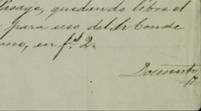 pasage, quedando libre el
para uso del Sr Conde
mo, en fs. 2.
Documento